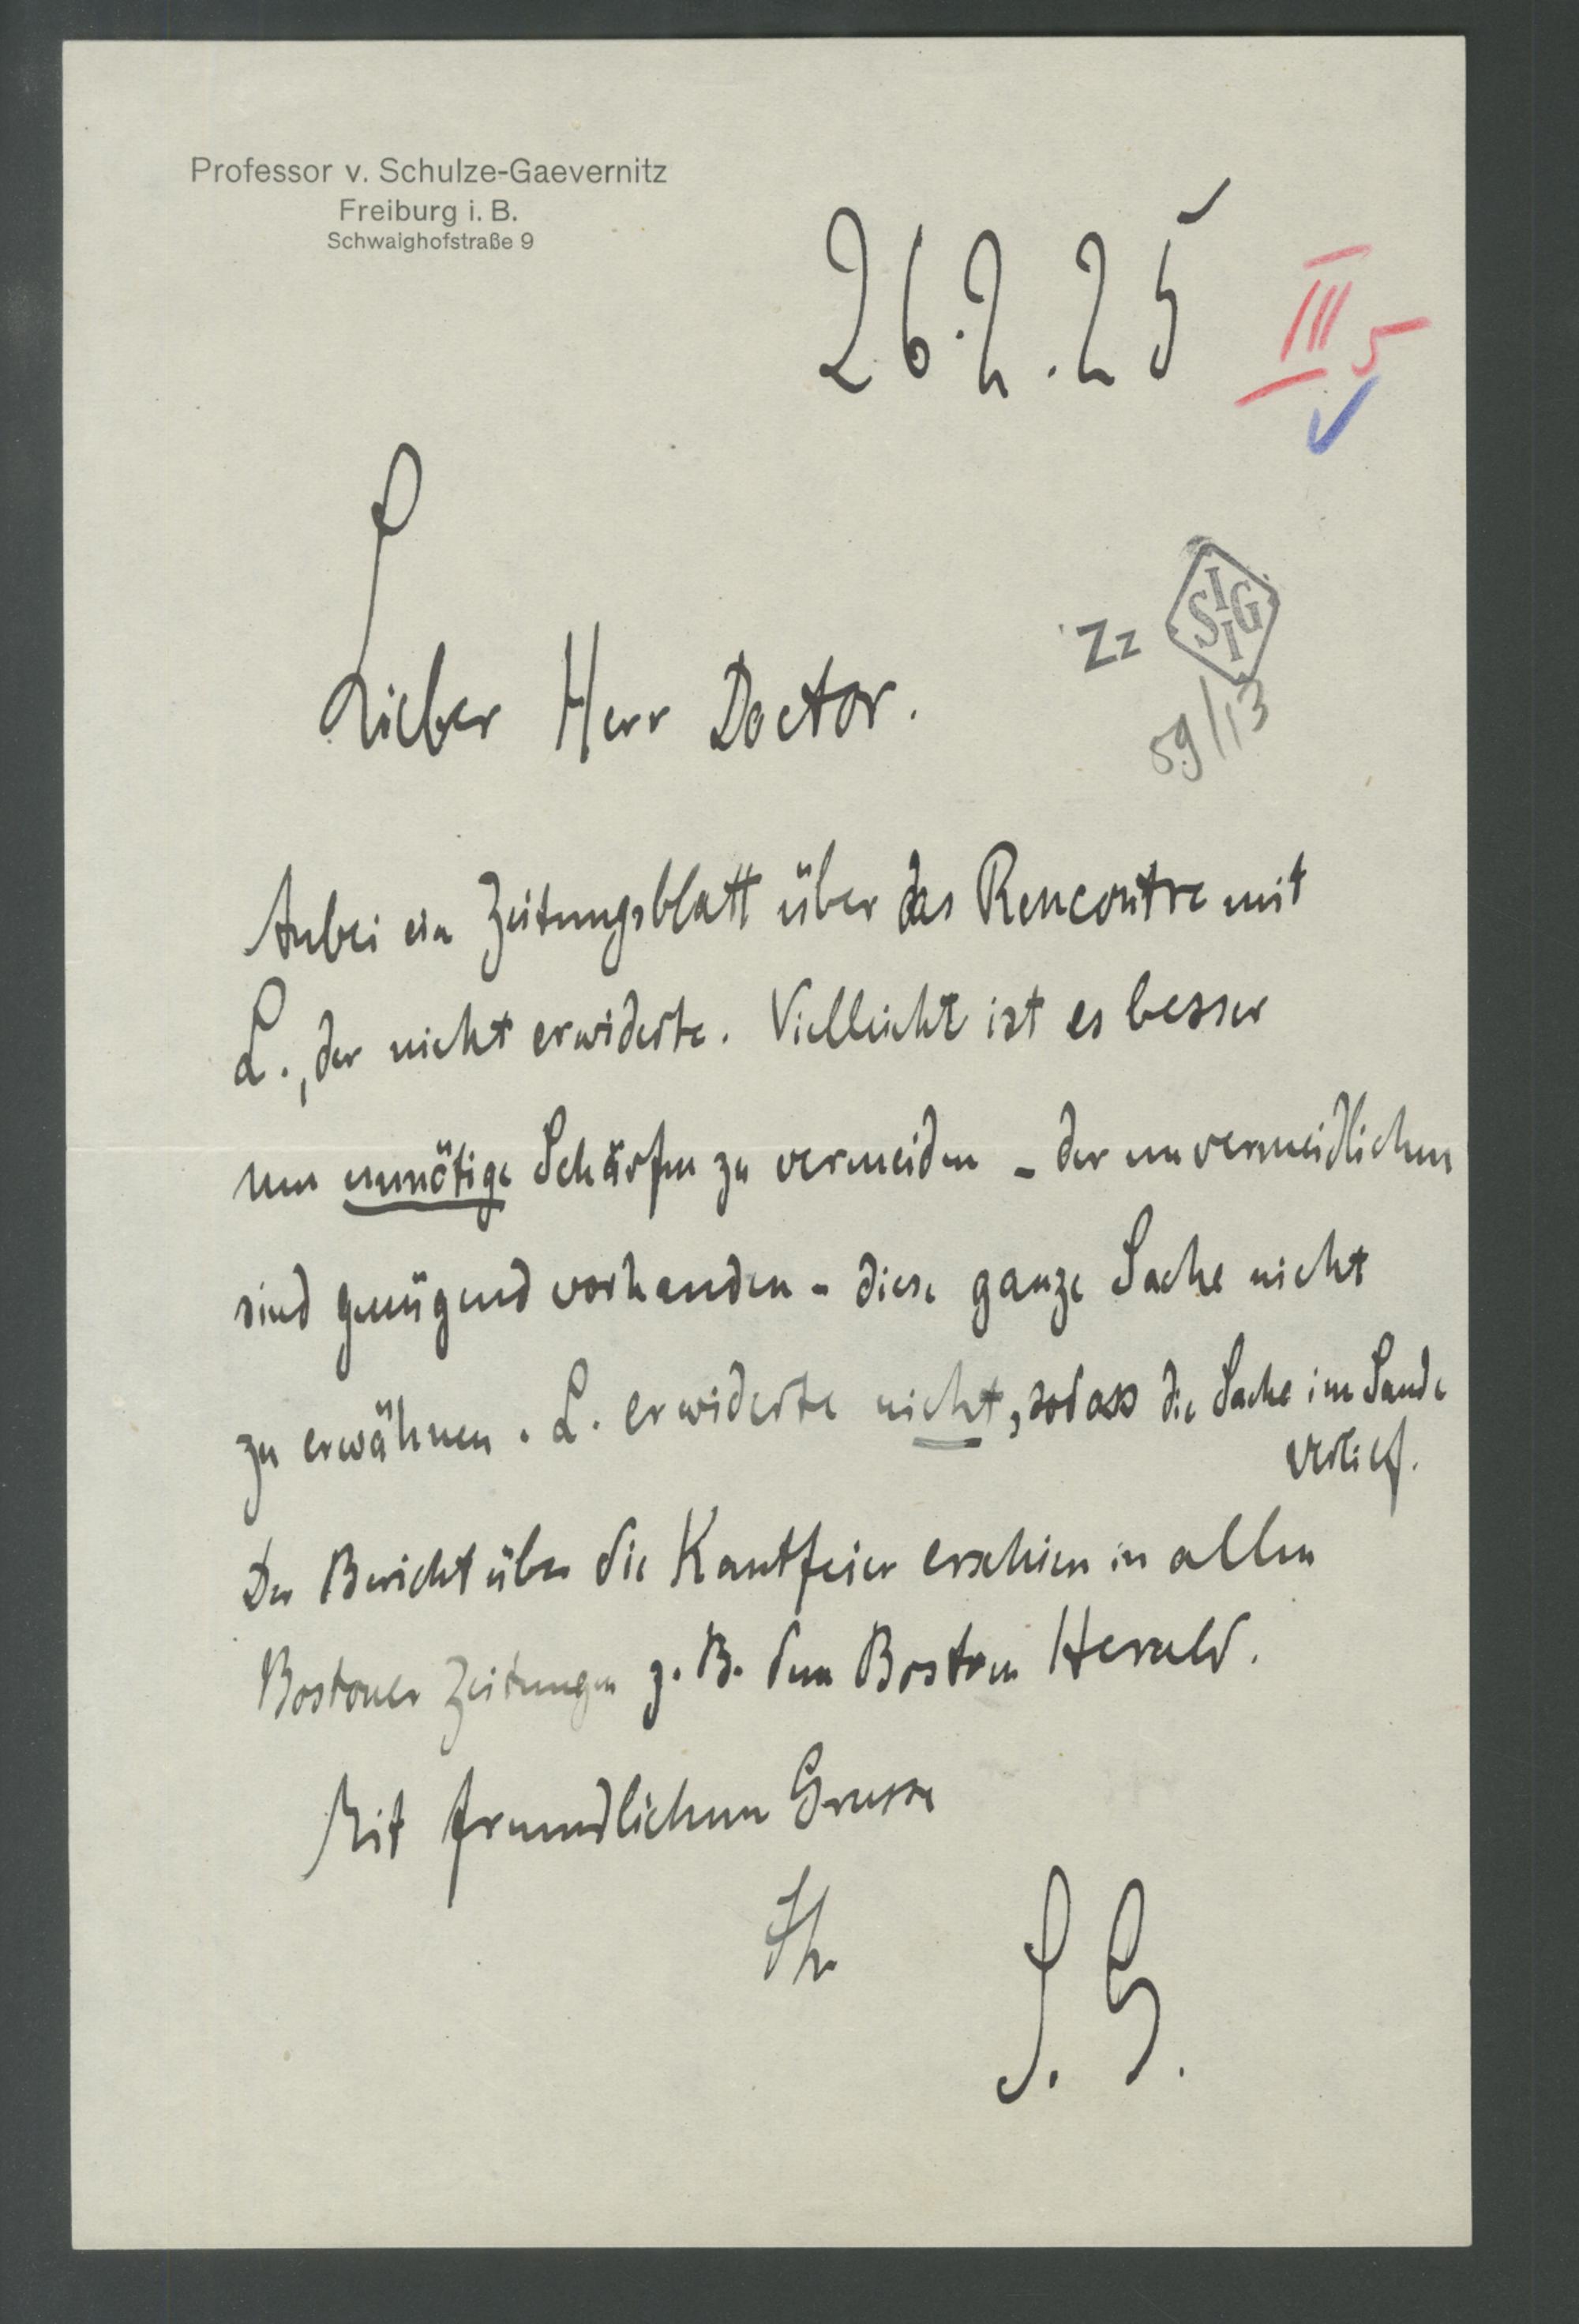 Professor v. Schulze-Gaevernitz
Freiburg i. B.
Schwaighofstraße 9
26.2.25
III 5
Zz SIGI
59/13
Lieber Herr Doctor.
Anbei ein Zeitungsblatt über das Rencontre mit
L., der nicht erwiderte. Vielleicht ist es besser
um unnötige Schärfen zu vermeiden - der unvermeidlichen
sind genügend vorhanden - diese ganze Sache nicht
zu erwähnen. L. erwiderte nicht, sodass die Sache im Sande
verlief.
Der Bericht über die Kantfeier erschien in allen
Bostoner Zeitungen z. B. dem Boston Herald.
Mit freundlichem Grusse
Ihr S. G.